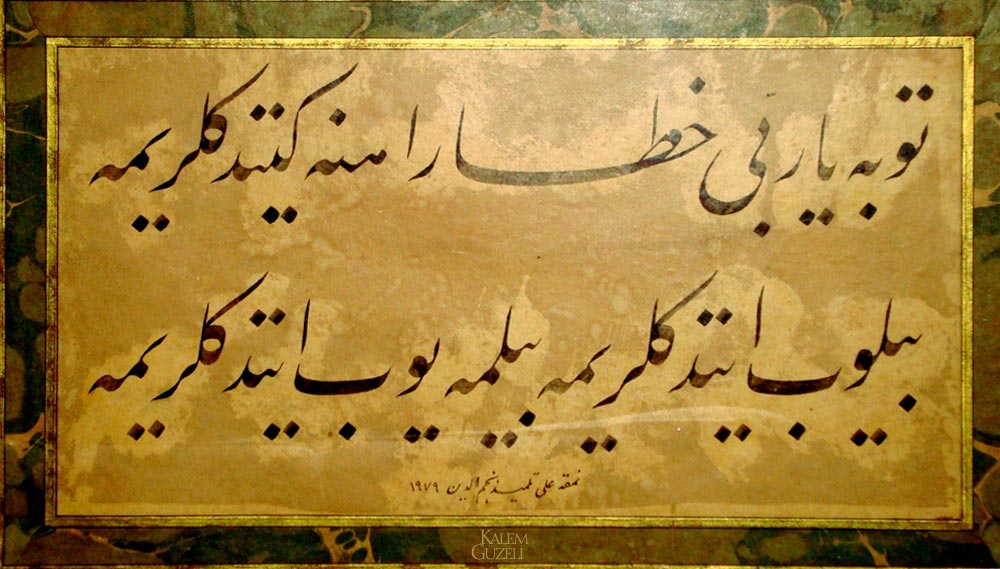 توبه یا ربی خطا راهنه کیتدکلریمه
بیلوب ایتدکلریمه بیلمه یوب ایتدکلریمه
نمقه علی تلمیذ نجم الدین ۱۹۷۹
KALEM
GÜZELİ